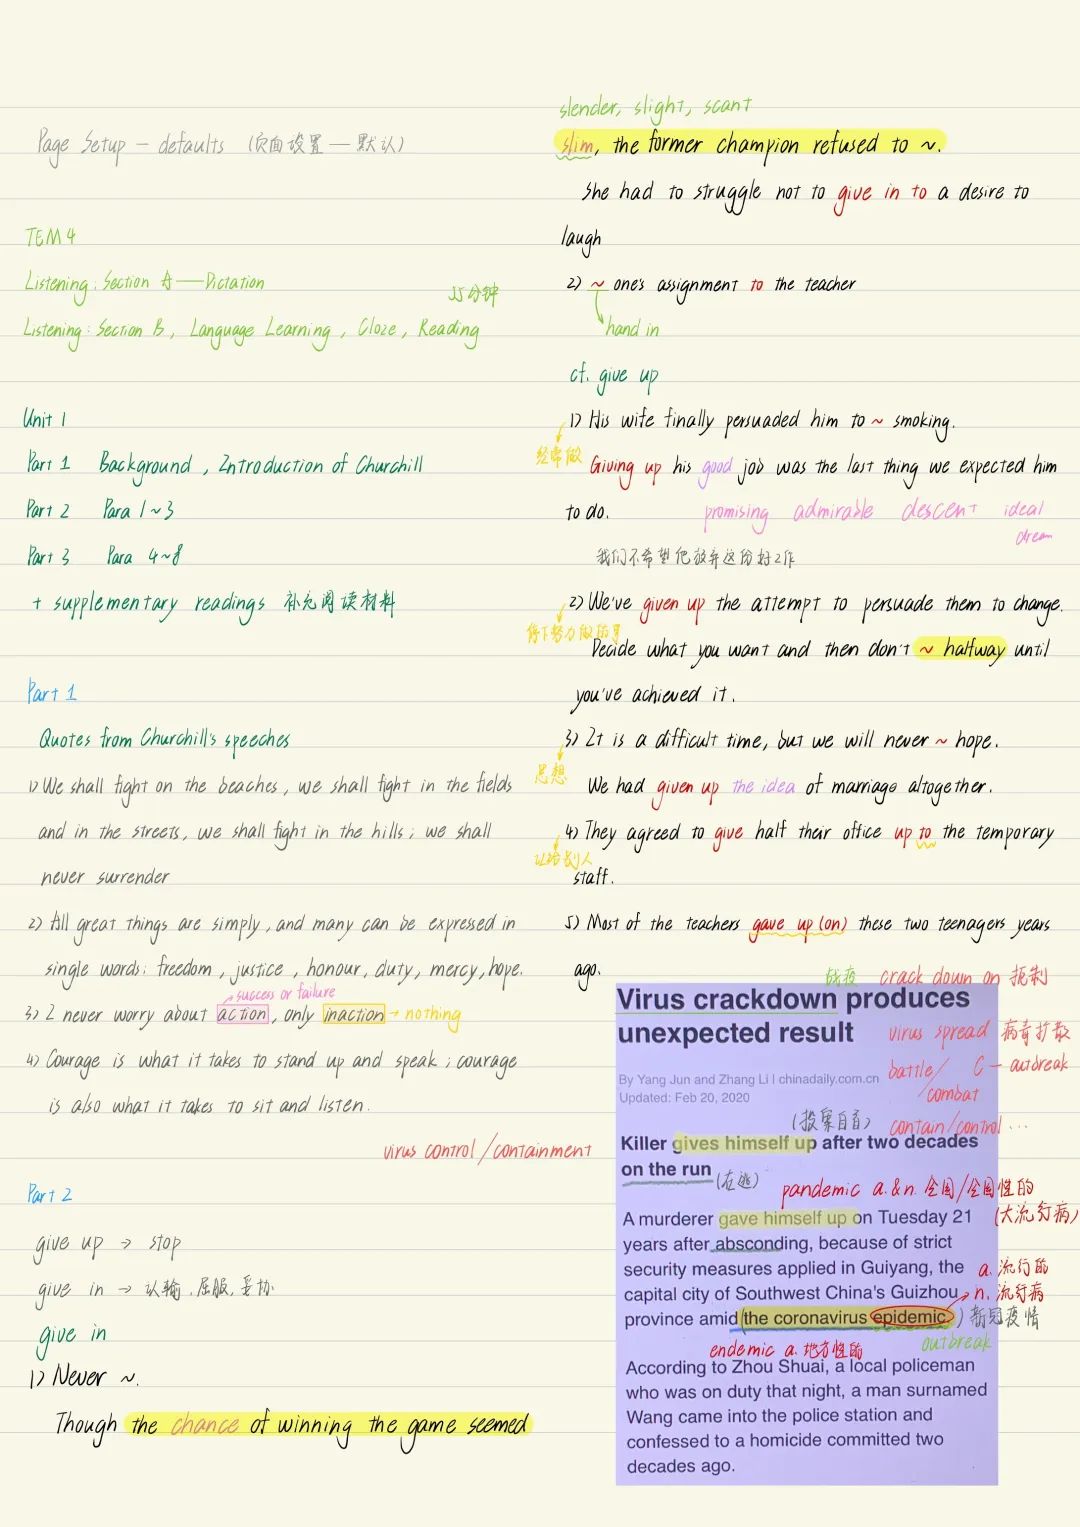 Page Setup – defaults （页面设置 — 默认）
TEM 4
Listening: Section A — Dictation
35分钟
Listening: Section B, Language Learning, Cloze, Reading
Unit 1
Part 1 Background, Introduction of Churchill
Part 2 Para 1~3
Part 3 Para 4~8
+ supplementary readings 补充阅读材料
Part 1
Quotes from Churchill's speeches
1) We shall fight on the beaches, we shall fight in the fields
and in the streets, we shall fight in the hills; we shall
never surrender
2) All great things are simply, and many can be expressed in
single words: freedom, justice, honour, duty, mercy, hope.
→ success or failure
3) I never worry about action, only inaction → nothing
4) Courage is what it takes to stand up and speak; courage
is also what it takes to sit and listen.
virus control/containment
Part 2
give up → stop
give in → 认输.屈服.妥协
give in
1) Never ~.
Though the chance of winning the game seemed
slender, slight, scant
slim, the former champion refused to ~.
She had to struggle not to give in to a desire to
laugh
2) ~ one's assignment to the teacher
hand in
cf. give up
1) His wife finally persuaded him to ~ smoking.
经常做
Giving up his good job was the last thing we expected him
to do.
promising admirable descent ideal
dream
我们不希望他放弃这份好工作
2) We've given up the attempt to persuade them to change.
停下努力做的事
Decide what you want and then don't ~ halfway until
you've achieved it.
3) It is a difficult time, but we will never ~ hope.
思想
We had given up the idea of marriage altogether.
4) They agreed to give half their office up to the temporary
让给别人
staff.
5) Most of the teachers gave up (on) these two teenagers years
ago.
战疫 crack down on 扼制
Virus crackdown produces
unexpected result
virus spread 病毒扩散
battle/ C – outbreak
combat
By Yang Jun and Zhang Li | chinadaily.com.cn
Updated: Feb 20, 2020
(投案自首) contain/control ...
Killer gives himself up after two decades
on the run (在逃)
pandemic a.&n. 全国/全国性的
(大流行病)
A murderer gave himself up on Tuesday 21
years after absconding, because of strict
security measures applied in Guiyang, the
a. 流行的
capital city of Southwest China's Guizhou
n. 流行病
province amid (the coronavirus epidemic.) 新冠疫情
endemic a. 地方性的
outbreak
According to Zhou Shuai, a local policeman
who was on duty that night, a man surnamed
Wang came into the police station and
confessed to a homicide committed two
decades ago.